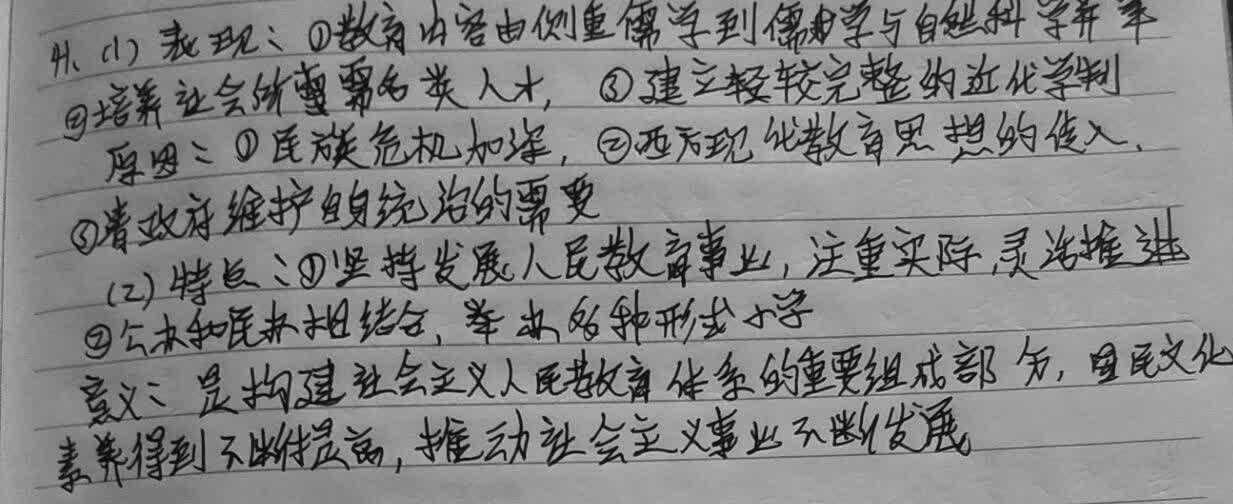 41、(1) 表现：①教育内容由侧重儒学到儒学与自然科学并举
②培养社会所需各类人才，③建立较完整的近代学制
原因：①民族危机加深，②西方现代教育思想的传入，
③清政府维护自身统治的需要
(2) 特点：①坚持发展人民教育事业，注重实际，灵活推进
②公办和民办相结合，举办各种形式小学
意义：是构建社会主义人民教育体系的重要组成部分，国民文化
素养得到不断提高，推动社会主义事业不断发展